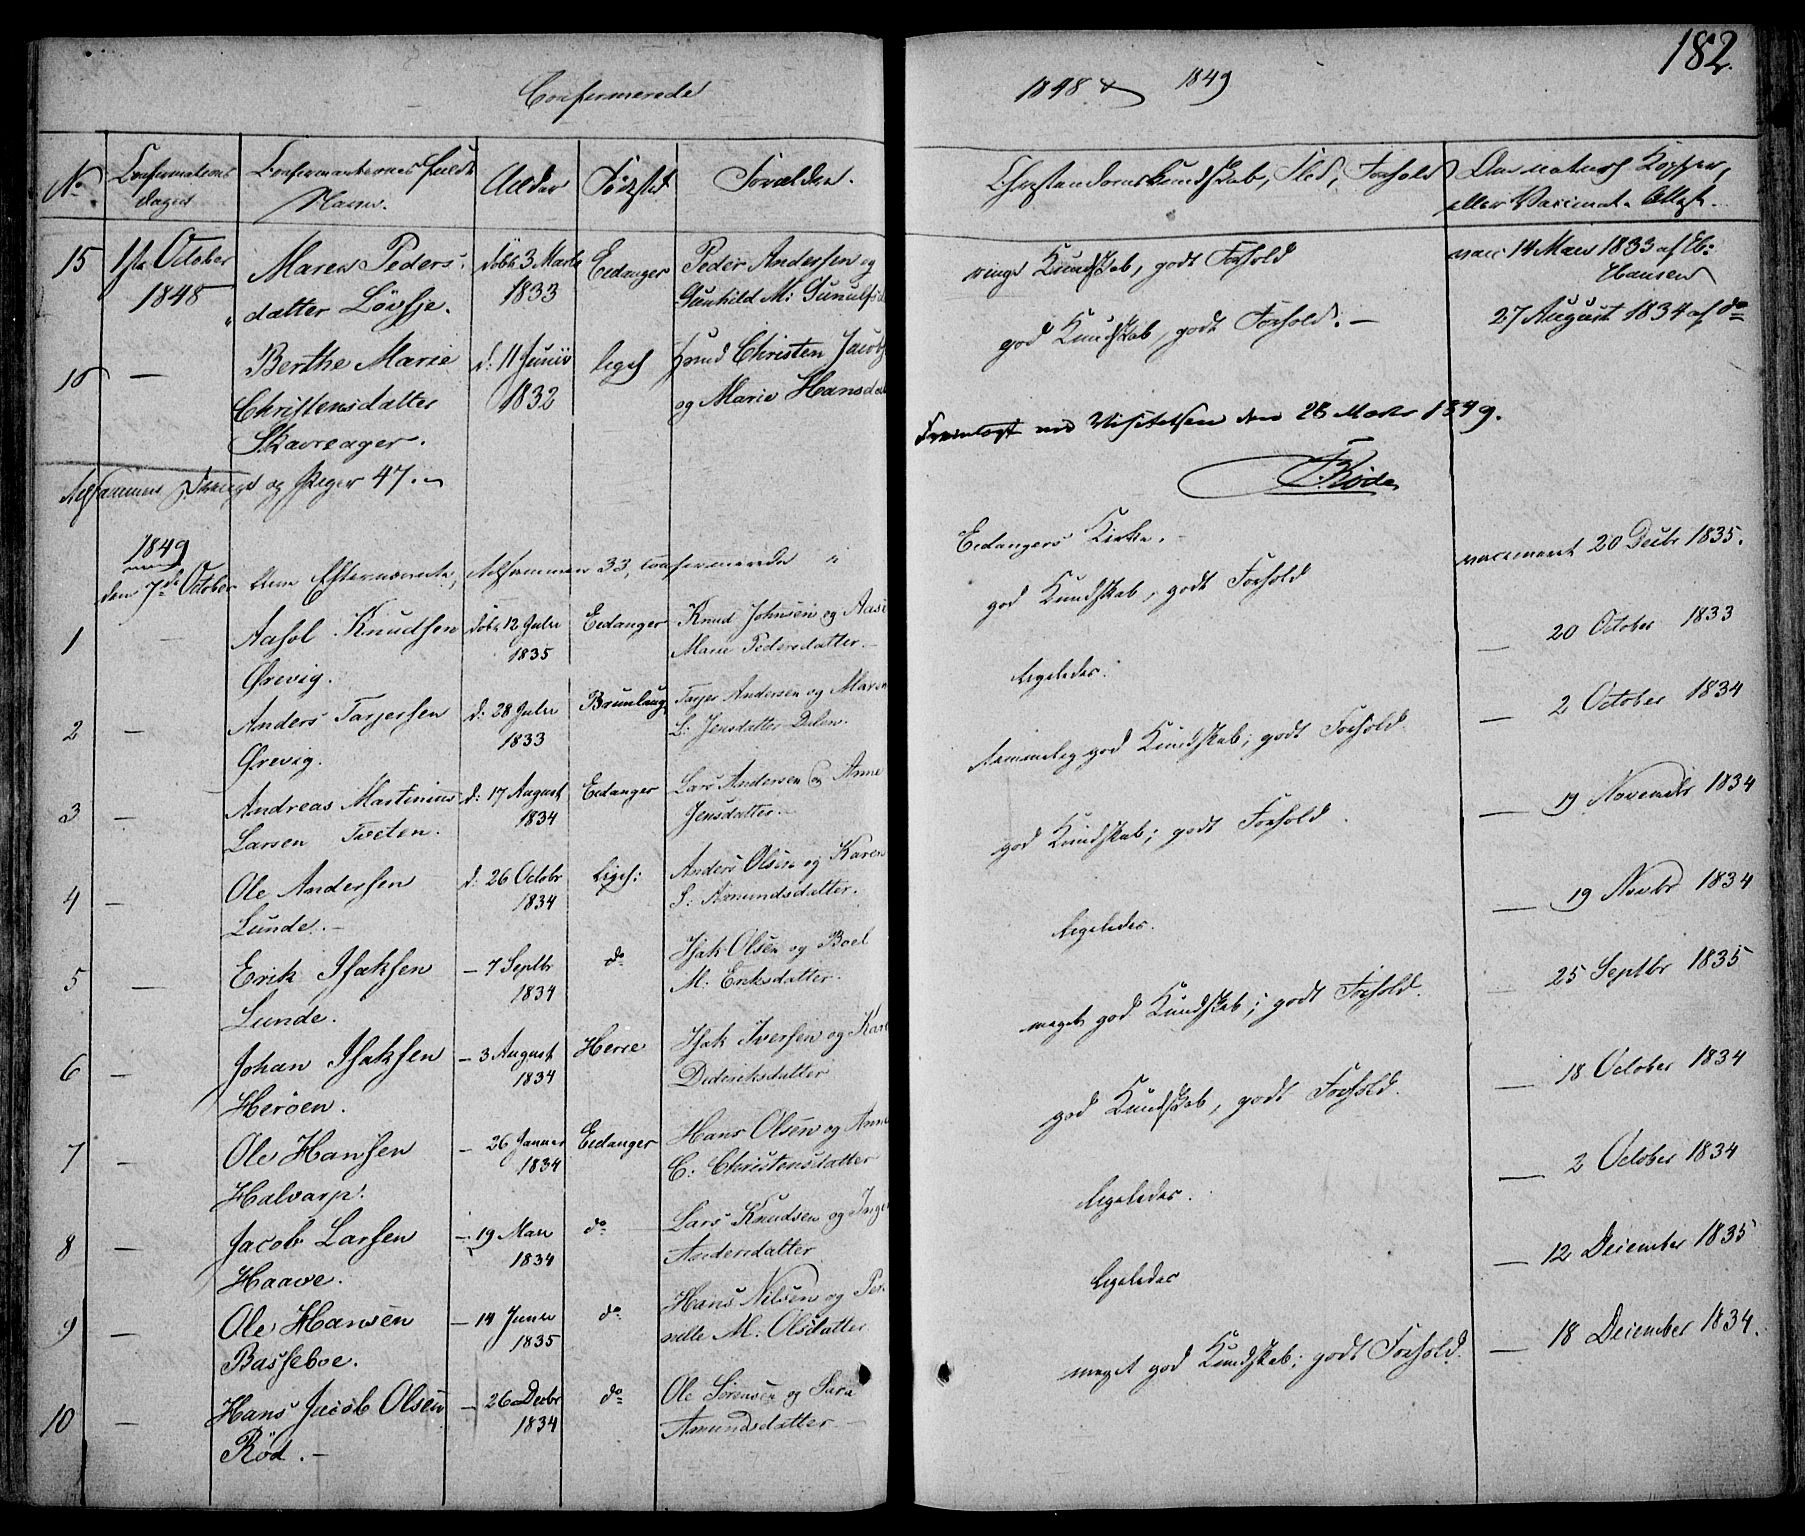 182.
Confirmerede
1848 & 1849
No
Confirmations
Dagen
Confirmanternes fulde
Navn.
Alder
Födsted
Forældre.
Christendomskundskab, Flid, Forhold
Om naturl Kopper,
eller Vaccinat. Attest.
15
1ste October
1848
Maren Peders-
datter Lövsje.
döbt 3 Marts
1833
Eidanger
Peder Andersen og
Gunhild M:
ringe Kundskab, godt Forhold
vacc 14 Mars 1833 af Chr:
Hansen
16
—
Berthe Marie
Christensdatter
Skavreager.
d: 11 Junii
1832
ligel
Christen Jacobs
og Marie Hansdat
god Kundskab, godt Forhold. —
27 August 1834 af do
Fremlagt ved Visitatsen den 28 Marts 1849.
Rode
Alsammen Drenge og Piger 47.
1849
den 7de October
blev Efternævnte, Alsammen 33, confirmerede i
Eidangers Kirke.
1
—
Aasol Knudsen
Ørevig.
döbt 12 Julii
1835
Eidanger
Knud Johnsen og Aase
Marie Pedersdatter —
god Kundskab, godt Forhold
vaccineret 20 Decbr 1835.
2
—
Anders Tarjersen
Ørevig.
d: 28 Julii
1833
Brunlaug
Tarjer Andersen og Maren
L: Jensdatter Dalen.
ligeledes.
— 20 October 1833
3
—
Andreas Martinius
Larsen Tveten.
d: 17 August
1834
Eidanger
Lars Andersen og Anne
Jensdatter.
temmelig god Kundskab; godt Forhold.
— 2 October 1834
4
—
Ole Andersen
Lunde. —
d: 26 Octobr
1834
Ligel:
Anders Olsen og Karen
S: Amundsdatter.
god Kundskab; godt Forhold.
— 19 Novembr 1834
5
—
Erik Isaksen
Lunde.
— 7 Septbr
1834
do
Isak Olsen og Boel
M. Eriksdatter.
ligeledes.
— 19 Novbr 1834
6
—
Johan Isaksen
Heröen.
— 3 August
1834
Herre
Isak Iversen og Kare
Dideriksdatter
meget god Kundskab; godt Forhold.
25 Septbr 1835
7
—
Ole Hansen
Halvarp.
— 26 Januar
1834
Eidanger
Hans Olsen og Anne
C: Christensdatter
god Kundskab, godt Forhold.
— 18 October 1834
8
—
Jacob Larsen
Haave.
— 19 Mars
1834
do
Lars Knudsen og Inge
Andersdatter
ligeledes.
— 2 October 1834
9
—
Ole Hansen
Basseboe.
— 14 Junii
1835
do
Hans Nilsen og Per
nille M. Olsdatter
ligeledes
— 12 December 1835
10
—
Hans Jacob Olsen
Röd. —
— 26 Decbr
1834
do
Ole Sörensen og Sara
Amundsdatter —
meget god Kundskab; godt Forhold.
— 18 December 1834.